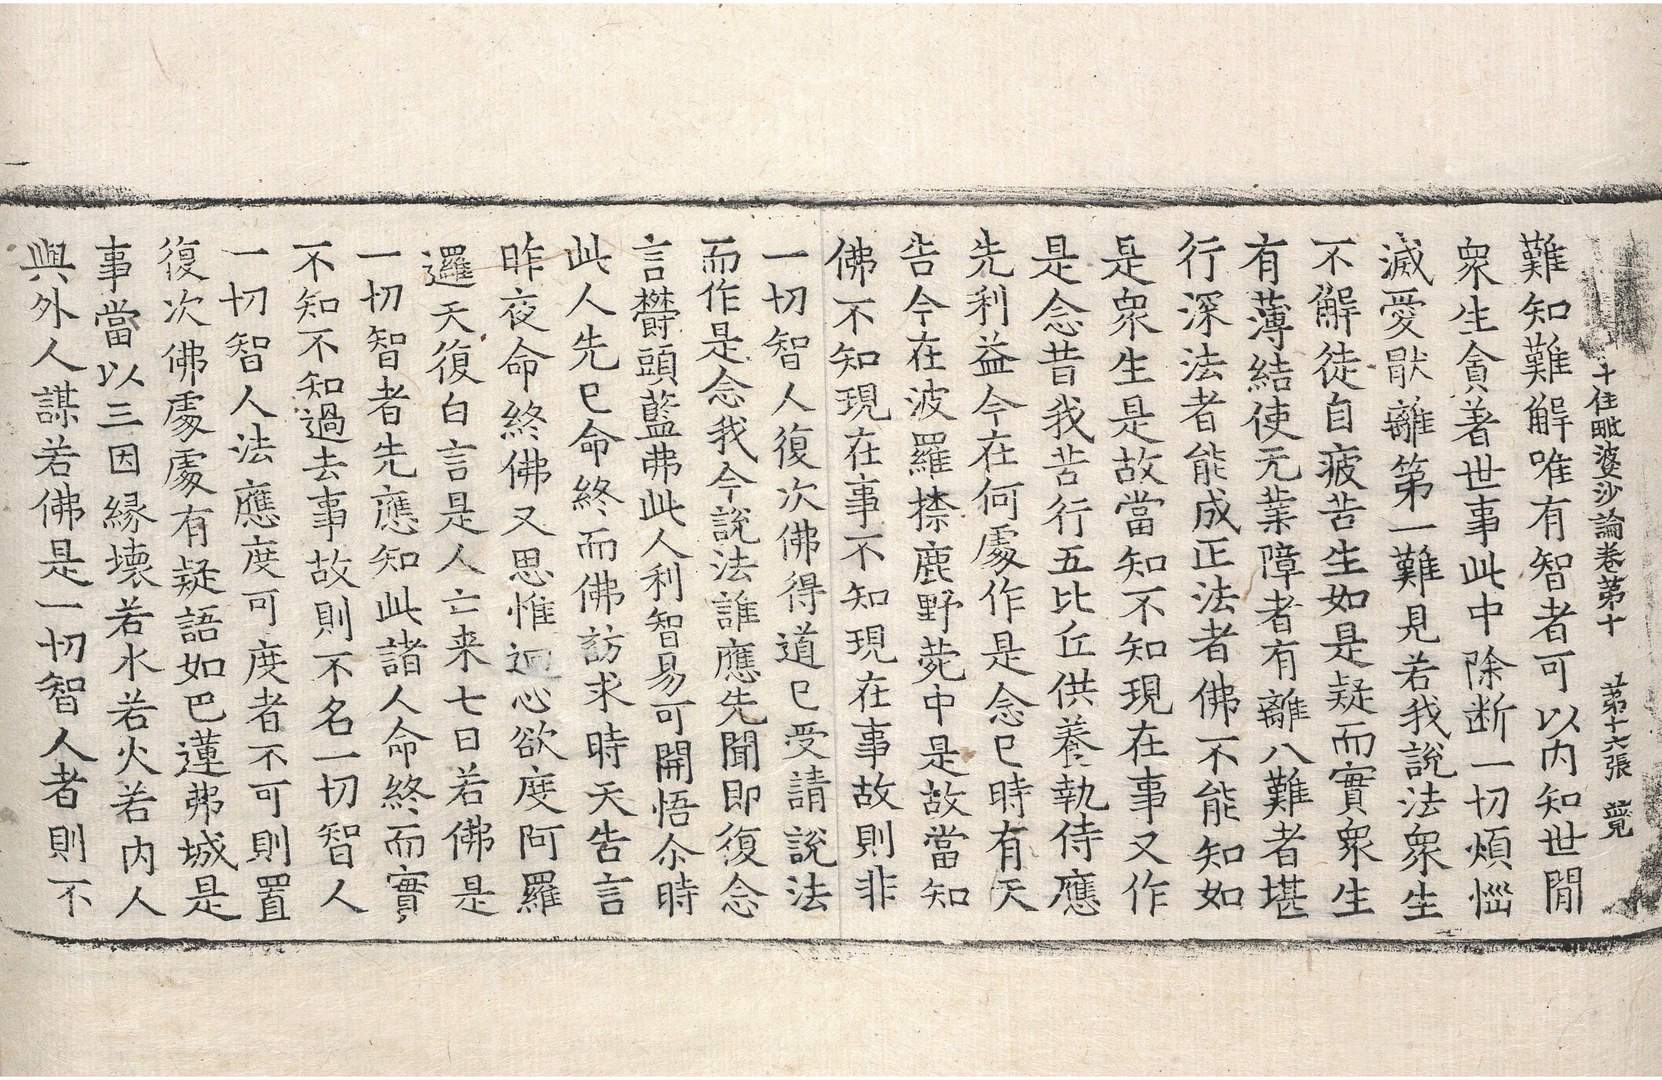 十住毗婆沙論卷第十 第十六張 覓
難知難解唯有智者可以內知世間
衆生貪著世事此中除断一切煩惱
滅愛猒離第一難見若我說法衆生
不解徒自疲苦生如是疑而實衆生
有薄結使无業障者有離八難者堪
行深法者能成正法者佛不能知如
是衆生是故當知不知現在事又作
是念昔我苦行五比丘供養執侍應
先利益今在何處作是念已時有天
告今在波羅㮏鹿野菀中是故當知
佛不知現在事不知現在事故則非
一切智人復次佛得道已受請說法
而作是念我今說法誰應先聞即復念
言欝頭藍弗此人利智易可開悟尒時
此人先已命終而佛訪求時天告言
昨夜命終佛又思惟迴心欲度阿羅
邏天復白言是人亡来七日若佛是
一切智者先應知此諸人命終而實
不知不知過去事故則不名一切智人
一切智人法應度可度者不可則置
復次佛處處有疑語如巴蓮弗城是
事當以三因緣壞若水若火若內人
與外人謀若佛是一切智人者則不